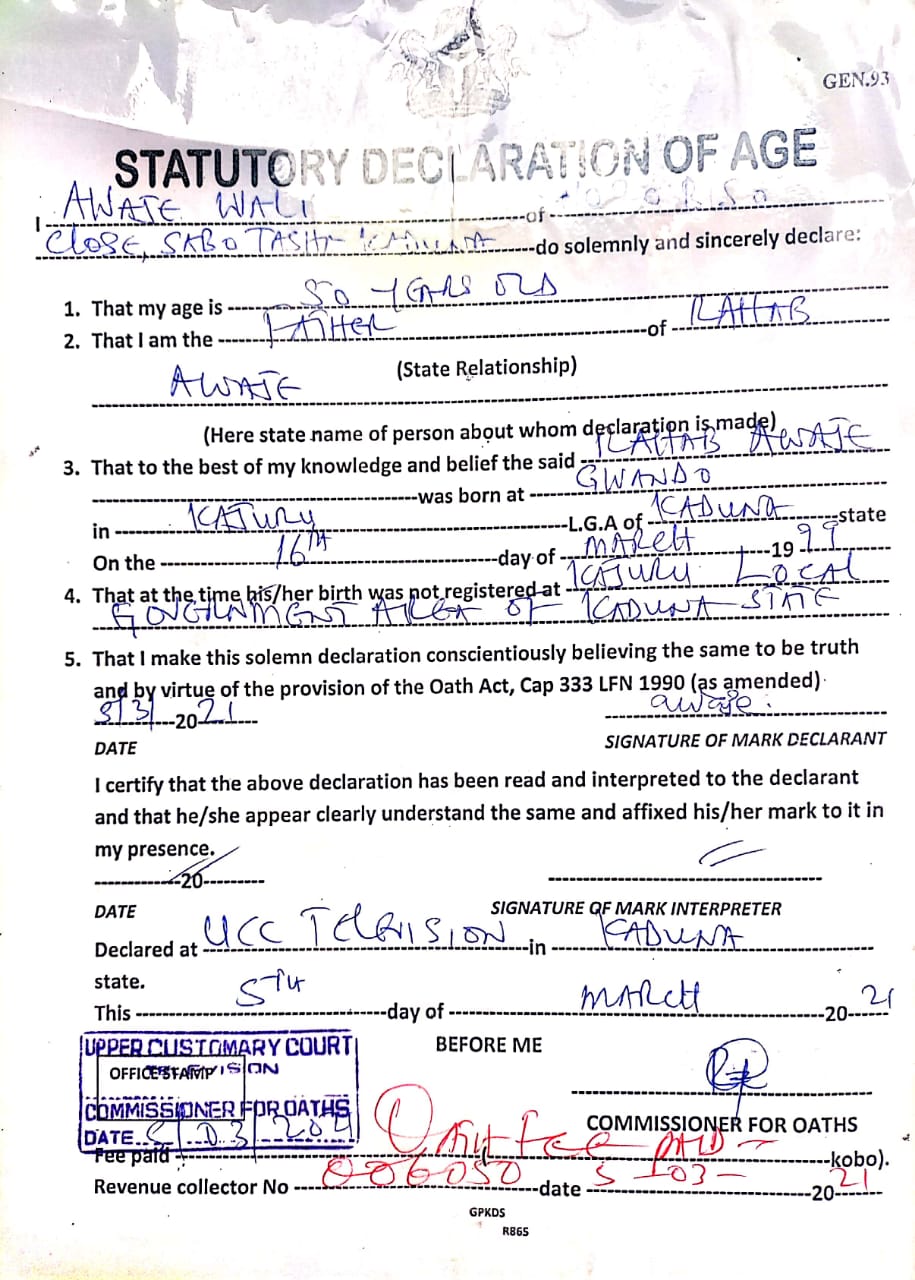 GEN.93
STATUTORY DECLARATION OF AGE
I AWAJE WALI of
CLOSE, SABO TASHA KADUNA do solemnly and sincerely declare:
1. That my age is 50 YEARS OLD
2. That I am the FATHER of RAHAB
AWAJE (State Relationship)
(Here state name of person about whom declaration is made)
3. That to the best of my knowledge and belief the said RAHAB AWAJE
was born at GWANDO
in KAJURU L.G.A of KADUNA state
On the 16TH day of MARCH 1999
4. That at the time his/her birth was not registered at KAJURU LOCAL
GOVERNMENT AREA OF KADUNA STATE
5. That I make this solemn declaration conscientiously believing the same to be truth
and by virtue of the provision of the Oath Act, Cap 333 LFN 1990 (as amended)
5/3/2021 awaje
DATE SIGNATURE OF MARK DECLARANT
I certify that the above declaration has been read and interpreted to the declarant
and that he/she appear clearly understand the same and affixed his/her mark to it in
my presence.
20
DATE SIGNATURE OF MARK INTERPRETER
Declared at UCC TELEVISION in KADUNA
state.
This 5TH day of MARCH 2021
UPPER CUSTOMARY COURT BEFORE ME
OFFICE STAMP
COMMISSIONER FOR OATHS
COMMISSIONER FOR OATHS
DATE 5/03/2021
Fee paid Oath Fee PAID kobo).
Revenue collector No 006050 date 5-03-2021
GPKDS
R865